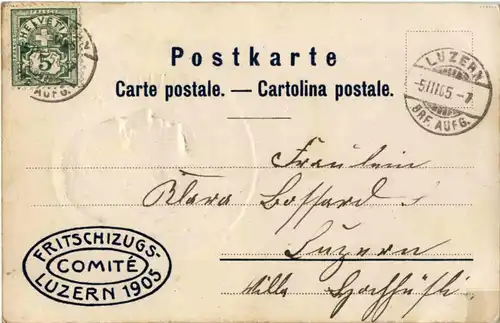 HELVETIA
5
LUZERN
5 III 05 - 7
BRF. AUFG.
Postkarte
Carte postale. — Cartolina postale.
Fräulein
Klara Bossard
Luzern
Villa Hochhüsli
FRITSCHIZUGS-
COMITÉ
LUZERN 1905